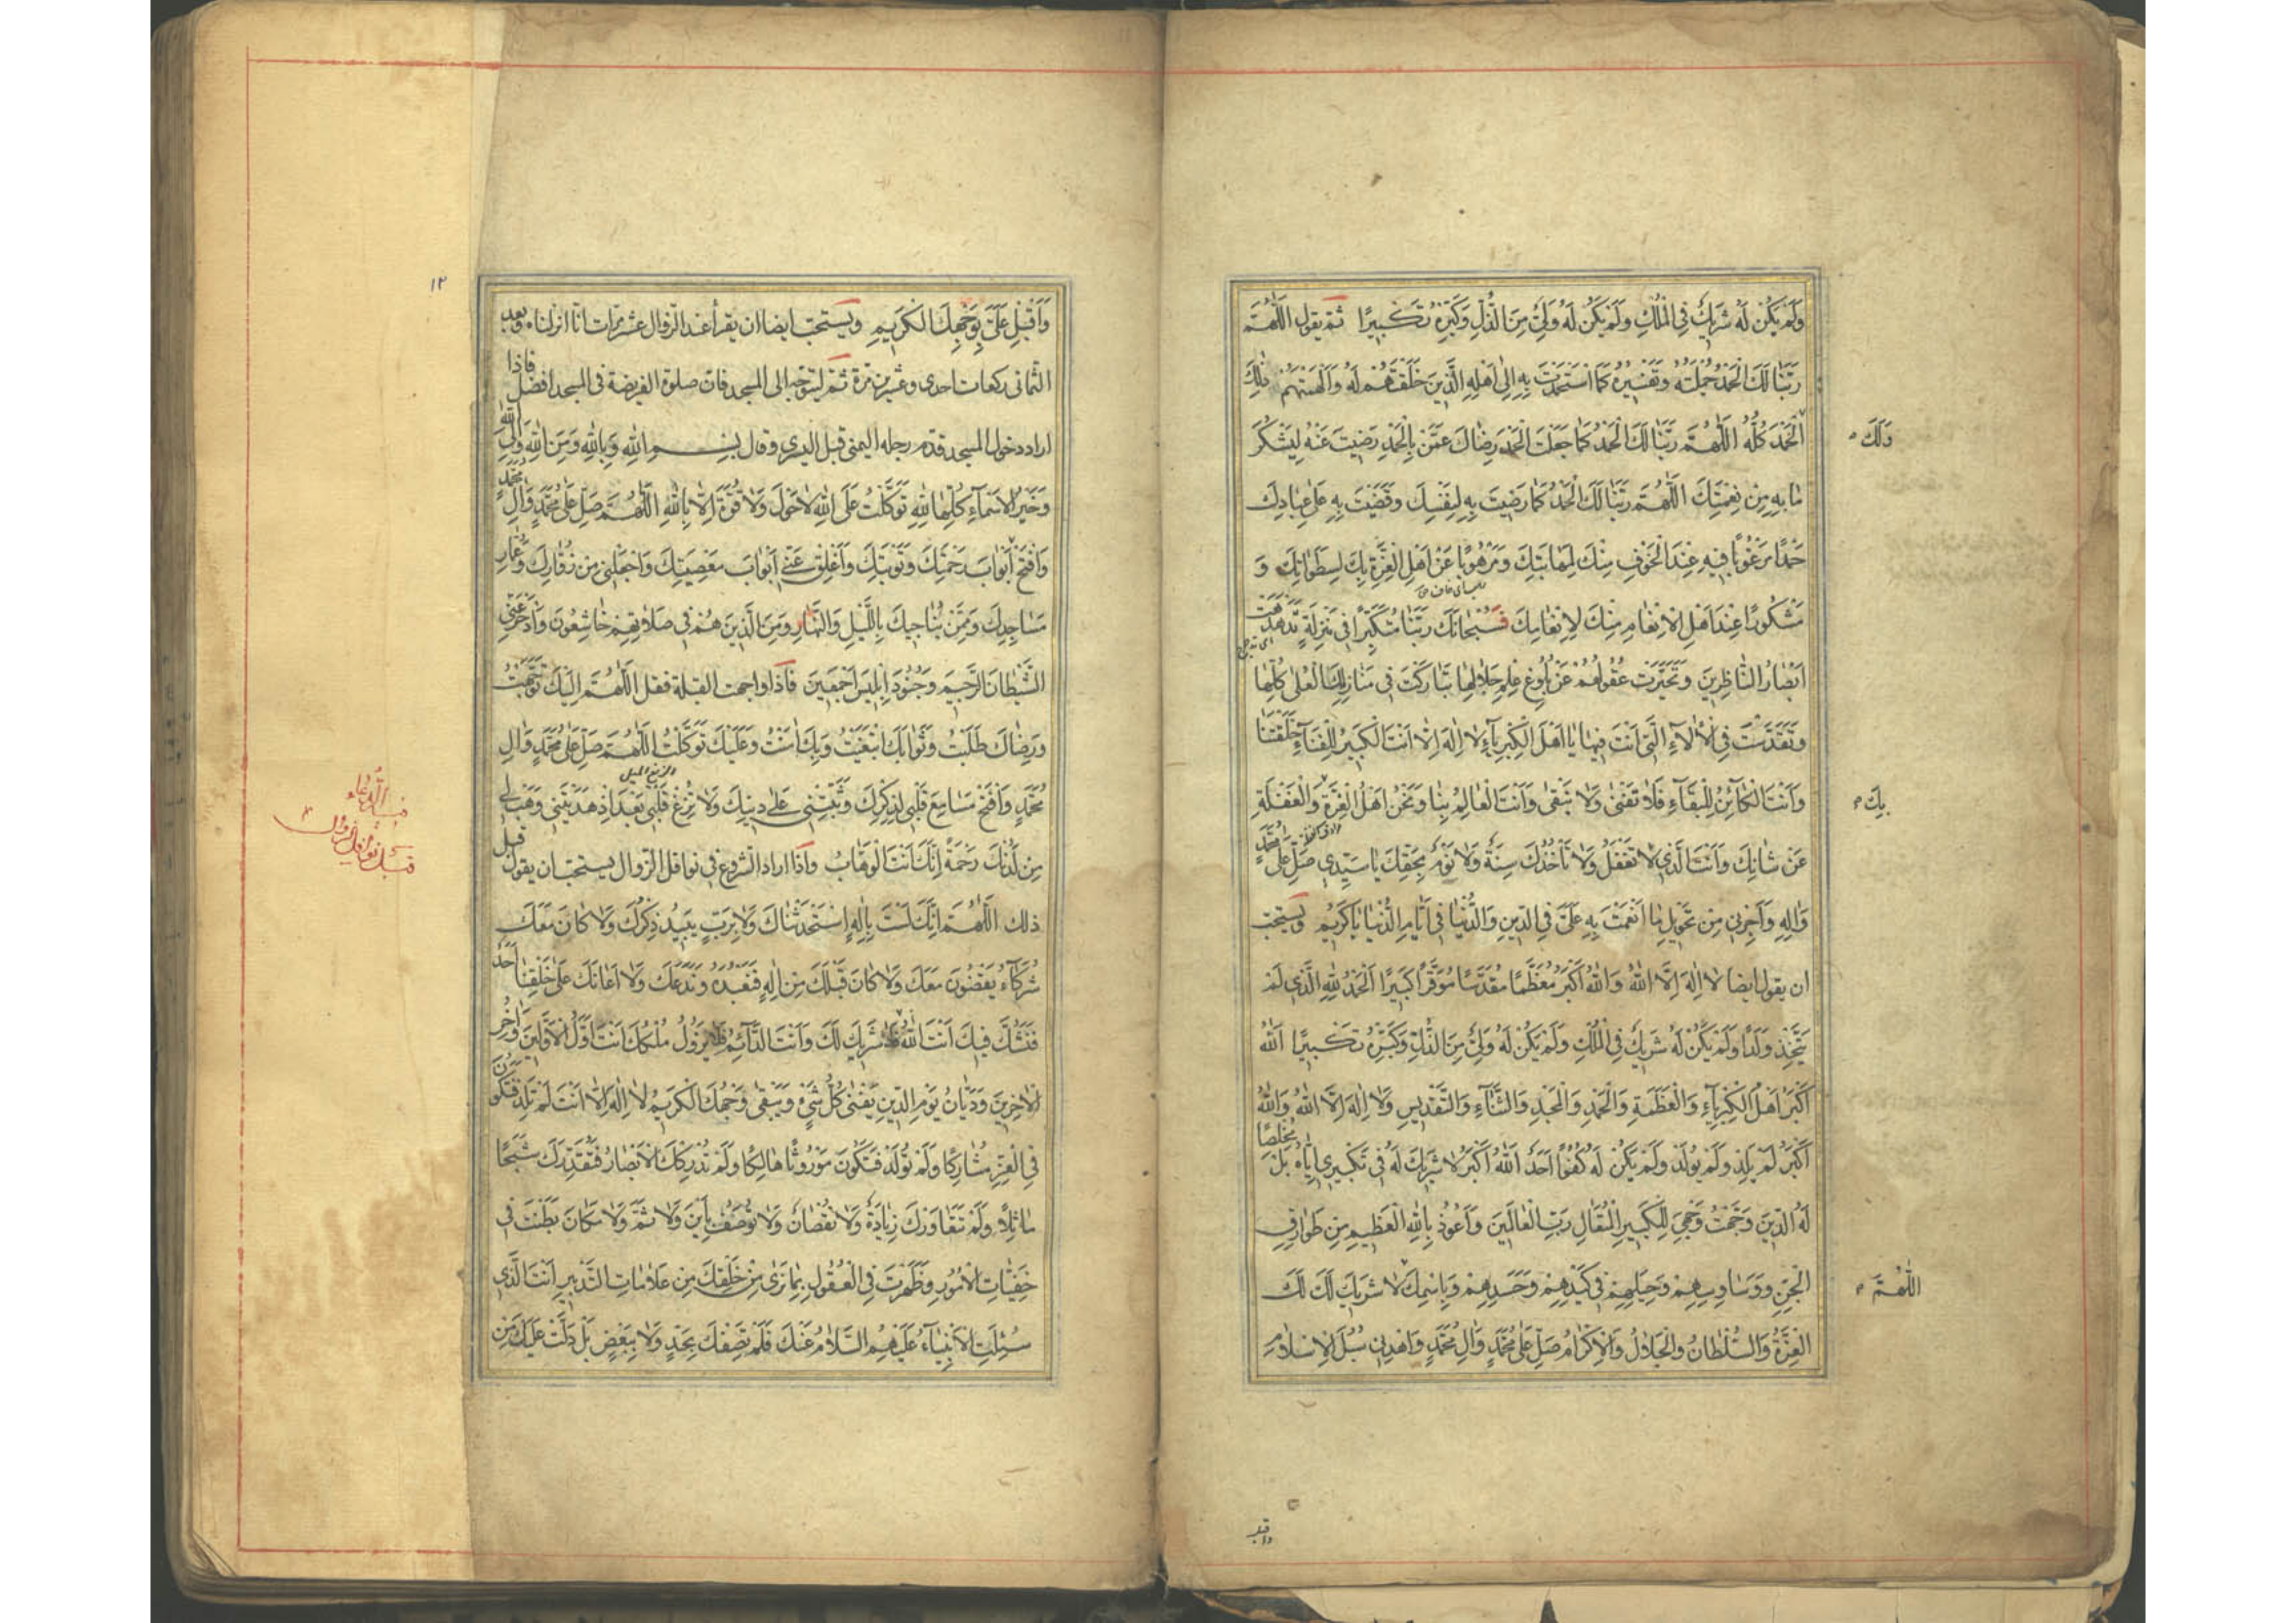 وَلَمْ يَكُنْ لَهُ شَرِيكٌ فِي الْمُلْكِ وَلَمْ يَكُنْ لَهُ وَلِيٌّ مِنَ الذُّلِّ وَكَبِّرْهُ تَكْبِيرًا ثم يقول اللّٰهُمَّ
رَبَّنَا لَكَ الْحَمْدُ جُمْلَتُهُ وَتَفْسِيرُهُ كَمَا اسْتَحْمَدْتَ بِهِ إِلَى أَهْلِهِ الَّذِينَ خَلَقْتَهُمْ لَهُ وَأَلْهَمْتَهُمْ ذٰلِكَ
الْحَمْدَ كُلَّهُ اللّٰهُمَّ رَبَّنَا لَكَ الْحَمْدُ كَمَا جَعَلْتَ الْحَمْدَ رِضَاكَ عَمَّنْ بِالْحَمْدِ رَضِيتَ عَنْهُ لِيَشْكُرَ
وَلَكَ
مَا بِهِ مِنْ نِعْمَتِكَ اللّٰهُمَّ رَبَّنَا لَكَ الْحَمْدُ كَمَا رَضِيتَ بِهِ لِنَفْسِكَ وَقَضَيْتَ بِهِ عَلَى عِبَادِكَ
حَمْدًا مَرْغُوبًا فِيهِ عِنْدَ الْخَوْفِ مِنْكَ لِمَهَابَتِكَ وَمَرْهُوبًا عَنْ أَهْلِ الْعِزَّةِ بِكَ لِسَطَوَاتِكَ وَ
مَشْكُورًا عِنْدَ أَهْلِ الْإِنْعَامِ مِنْكَ لِإِنْعَامِكَ فَسُبْحَانَكَ رَبَّنَا مُتَكَبِّرًا فِي مَنْزِلَةٍ تَدَهْدَهَتْ
أَبْصَارُ النَّاظِرِينَ وَتَحَيَّرَتْ عُقُولُهُمْ عَنْ بُلُوغِ عِلْمِ جَلَالِهَا تَبَارَكْتَ فِي مَنَازِلِكَ الْعُلَى كُلِّهَا
وَتَقَدَّسْتَ فِي الْآلَاءِ الَّتِي أَنْتَ فِيهَا يَا أَهْلَ الْكِبْرِيَاءِ لَا إِلٰهَ إِلَّا أَنْتَ الْكَبِيرُ لِلْفَنَاءِ خَلَقْتَنَا
وَأَنْتَ الْكَائِنُ لِلْبَقَاءِ فَلَا تَفْنَى وَلَا نَبْقَى وَأَنْتَ الْعَالِمُ بِنَا وَنَحْنُ أَهْلُ الْغِرَّةِ وَالْغَفْلَةِ
بِكَ
عَنْ شَأْنِكَ وَأَنْتَ الَّذِي لَا تَغْفُلُ وَلَا تَأْخُذُكَ سِنَةٌ وَلَا نَوْمٌ بِحَقِّكَ يَا سَيِّدِي صَلِّ عَلَى مُحَمَّدٍ
وَآلِهِ وَأَجِرْنِي مِنْ تَحْوِيلِ مَا أَنْعَمْتَ بِهِ عَلَيَّ فِي الدِّينِ وَالدُّنْيَا فِي أَيَّامِ الدُّنْيَا يَا كَرِيمُ ويستحب
ان يقول ايضا لَا إِلٰهَ إِلَّا اللهُ وَاللهُ أَكْبَرُ مُعَظَّمًا مُقَدَّسًا مُوَقَّرًا كَبِيرًا الْحَمْدُ لِلّٰهِ الَّذِي لَمْ
يَتَّخِذْ وَلَدًا وَلَمْ يَكُنْ لَهُ شَرِيكٌ فِي الْمُلْكِ وَلَمْ يَكُنْ لَهُ وَلِيٌّ مِنَ الذُّلِّ وَكَبِّرْهُ تَكْبِيرًا اللهُ
أَكْبَرُ أَهْلُ الْكِبْرِيَاءِ وَالْعَظَمَةِ وَالْحَمْدِ وَالْمَجْدِ وَالثَّنَاءِ وَالتَّقْدِيسِ وَلَا إِلٰهَ إِلَّا اللهُ وَاللهُ
أَكْبَرُ لَمْ يَلِدْ وَلَمْ يُولَدْ وَلَمْ يَكُنْ لَهُ كُفُوًا أَحَدٌ اللهُ أَكْبَرُ لَا شَرِيكَ لَهُ فِي تَكْبِيرِي إِيَّاهُ بَلْ مُخْلِصًا
لَهُ الدِّينَ وَجَّهْتُ وَجْهِيَ لِلْكَبِيرِ الْمُتَعَالِ رَبِّ الْعَالَمِينَ وَأَعُوذُ بِاللهِ الْعَظِيمِ مِنْ طَوَارِقِ
الْجِنِّ وَوَسَاوِسِهِمْ وَحِيَلِهِمْ فِي كَيْدِهِمْ وَحَسَدِهِمْ وَبِاسْمِكَ لَا شَرِيكَ لَكَ لَكَ
اللّٰهُمَّ
الْعِزَّةُ وَالسُّلْطَانُ وَالْجَلَالُ وَالْإِكْرَامُ صَلِّ عَلَى مُحَمَّدٍ وَآلِ مُحَمَّدٍ وَاهْدِنِي سُبُلَ الْإِسْلَامِ
واقبل
١٢
وَأَقْبِلْ عَلَيَّ بِوَجْهِكَ الْكَرِيمِ ويستحب ايضا ان يقرأ عند الزوال عشر مرات انا انزلناه وبعد
الثمانى ركعات احدى وعشرين مرة ثم ليتوجه الى المسجد فان صلوة الفريضة فى المسجد افضل فاذا
اراد دخول المسجد قدم رجله اليمنى قبل اليسرى وقال بِسْمِ اللهِ وَبِاللهِ وَمِنَ اللهِ وَإِلَى اللهِ
وَخَيْرُ الْأَسْمَاءِ كُلِّهَا لِلّٰهِ تَوَكَّلْتُ عَلَى اللهِ لَا حَوْلَ وَلَا قُوَّةَ إِلَّا بِاللهِ اللّٰهُمَّ صَلِّ عَلَى مُحَمَّدٍ وَآلِ مُحَمَّدٍ
وَافْتَحْ أَبْوَابَ رَحْمَتِكَ وَتَوْبَتِكَ وَأَغْلِقْ عَنِّي أَبْوَابَ مَعْصِيَتِكَ وَاجْعَلْنِي مِنْ زُوَّارِكَ وَعُمَّارِ
مَسَاجِدِكَ وَمِمَّنْ يُنَاجِيكَ بِاللَّيْلِ وَالنَّهَارِ وَمِنَ الَّذِينَ هُمْ فِي صَلَاتِهِمْ خَاشِعُونَ وَادْحَرْ عَنِّي
الشَّيْطَانَ الرَّجِيمَ وَجُنُودَ إِبْلِيسَ أَجْمَعِينَ فاذا واجهت القبلة فقل اللّٰهُمَّ إِلَيْكَ تَوَجَّهْتُ
وَرِضَاكَ طَلَبْتُ وَثَوَابَكَ ابْتَغَيْتُ وَبِكَ آمَنْتُ وَعَلَيْكَ تَوَكَّلْتُ اللّٰهُمَّ صَلِّ عَلَى مُحَمَّدٍ وَآلِ
مُحَمَّدٍ وَافْتَحْ مَسَامِعَ قَلْبِي لِذِكْرِكَ وَثَبِّتْنِي عَلَى دِينِكَ وَلَا تُزِغْ قَلْبِي بَعْدَ إِذْ هَدَيْتَنِي وَهَبْ لِي
مِنْ لَدُنْكَ رَحْمَةً إِنَّكَ أَنْتَ الْوَهَّابُ واذا اراد الشروع فى نوافل الزوال يستحب ان يقول قبل
قبل نوافل الزوال
ذلك اللّٰهُمَّ إِنَّكَ لَسْتَ بِإِلٰهٍ اسْتَحْدَثْنَاكَ وَلَا بِرَبٍّ يَبِيدُ ذِكْرُكَ وَلَا كَانَ مَعَكَ
شُرَكَاءُ يَقْضُونَ مَعَكَ وَلَا كَانَ قَبْلَكَ مِنْ إِلٰهٍ فَنَعْبُدَهُ وَنَدَعَكَ وَلَا أَعَانَكَ عَلَى خَلْقِنَا أَحَدٌ
فَنَشُكَّ فِيكَ أَنْتَ اللهُ لَا شَرِيكَ لَكَ وَأَنْتَ الدَّائِمُ فَلَا يَزُولُ مُلْكُكَ أَنْتَ أَوَّلُ الْأَوَّلِينَ وَآخِرُ
الْآخِرِينَ وَدَيَّانُ يَوْمِ الدِّينِ يَفْنَى كُلُّ شَيْءٍ وَيَبْقَى وَجْهُكَ الْكَرِيمُ لَا إِلٰهَ إِلَّا أَنْتَ لَمْ تَلِدْ فَتَكُونَ
فِي الْعِزِّ مُشَارَكًا وَلَمْ تُولَدْ فَتَكُونَ مَوْرُوثًا هَالِكًا وَلَمْ تُدْرِكْكَ الْأَبْصَارُ فَتُقَدِّرَكَ شَبَحًا
مَاثِلًا وَلَمْ تَتَعَاوَرْكَ زِيَادَةٌ وَلَا نُقْصَانٌ وَلَا تُوصَفُ بِأَيْنَ وَلَا ثَمَّ وَلَا مَكَانَ بَطَنْتَ فِي
خَفِيَّاتِ الْأُمُورِ وَظَهَرْتَ فِي الْعُقُولِ بِمَا نَرَى مِنْ خَلْقِكَ مِنْ عَلَامَاتِ التَّدْبِيرِ أَنْتَ الَّذِي
سُئِلَتِ الْأَنْبِيَاءُ عَلَيْهِمُ السَّلَامُ عَنْكَ فَلَمْ تَصِفْكَ بِحَدٍّ وَلَا بِبَعْضٍ بَلْ دَلَّتْ عَلَيْكَ مِنْ